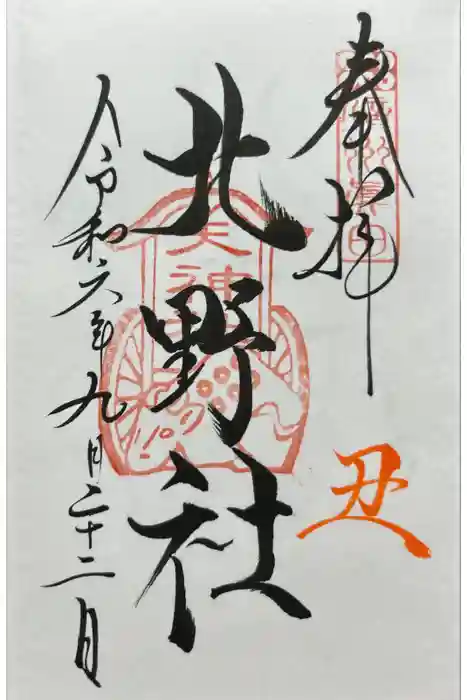 奉拝
丑
北野社
天神
令和六年九月二十二日